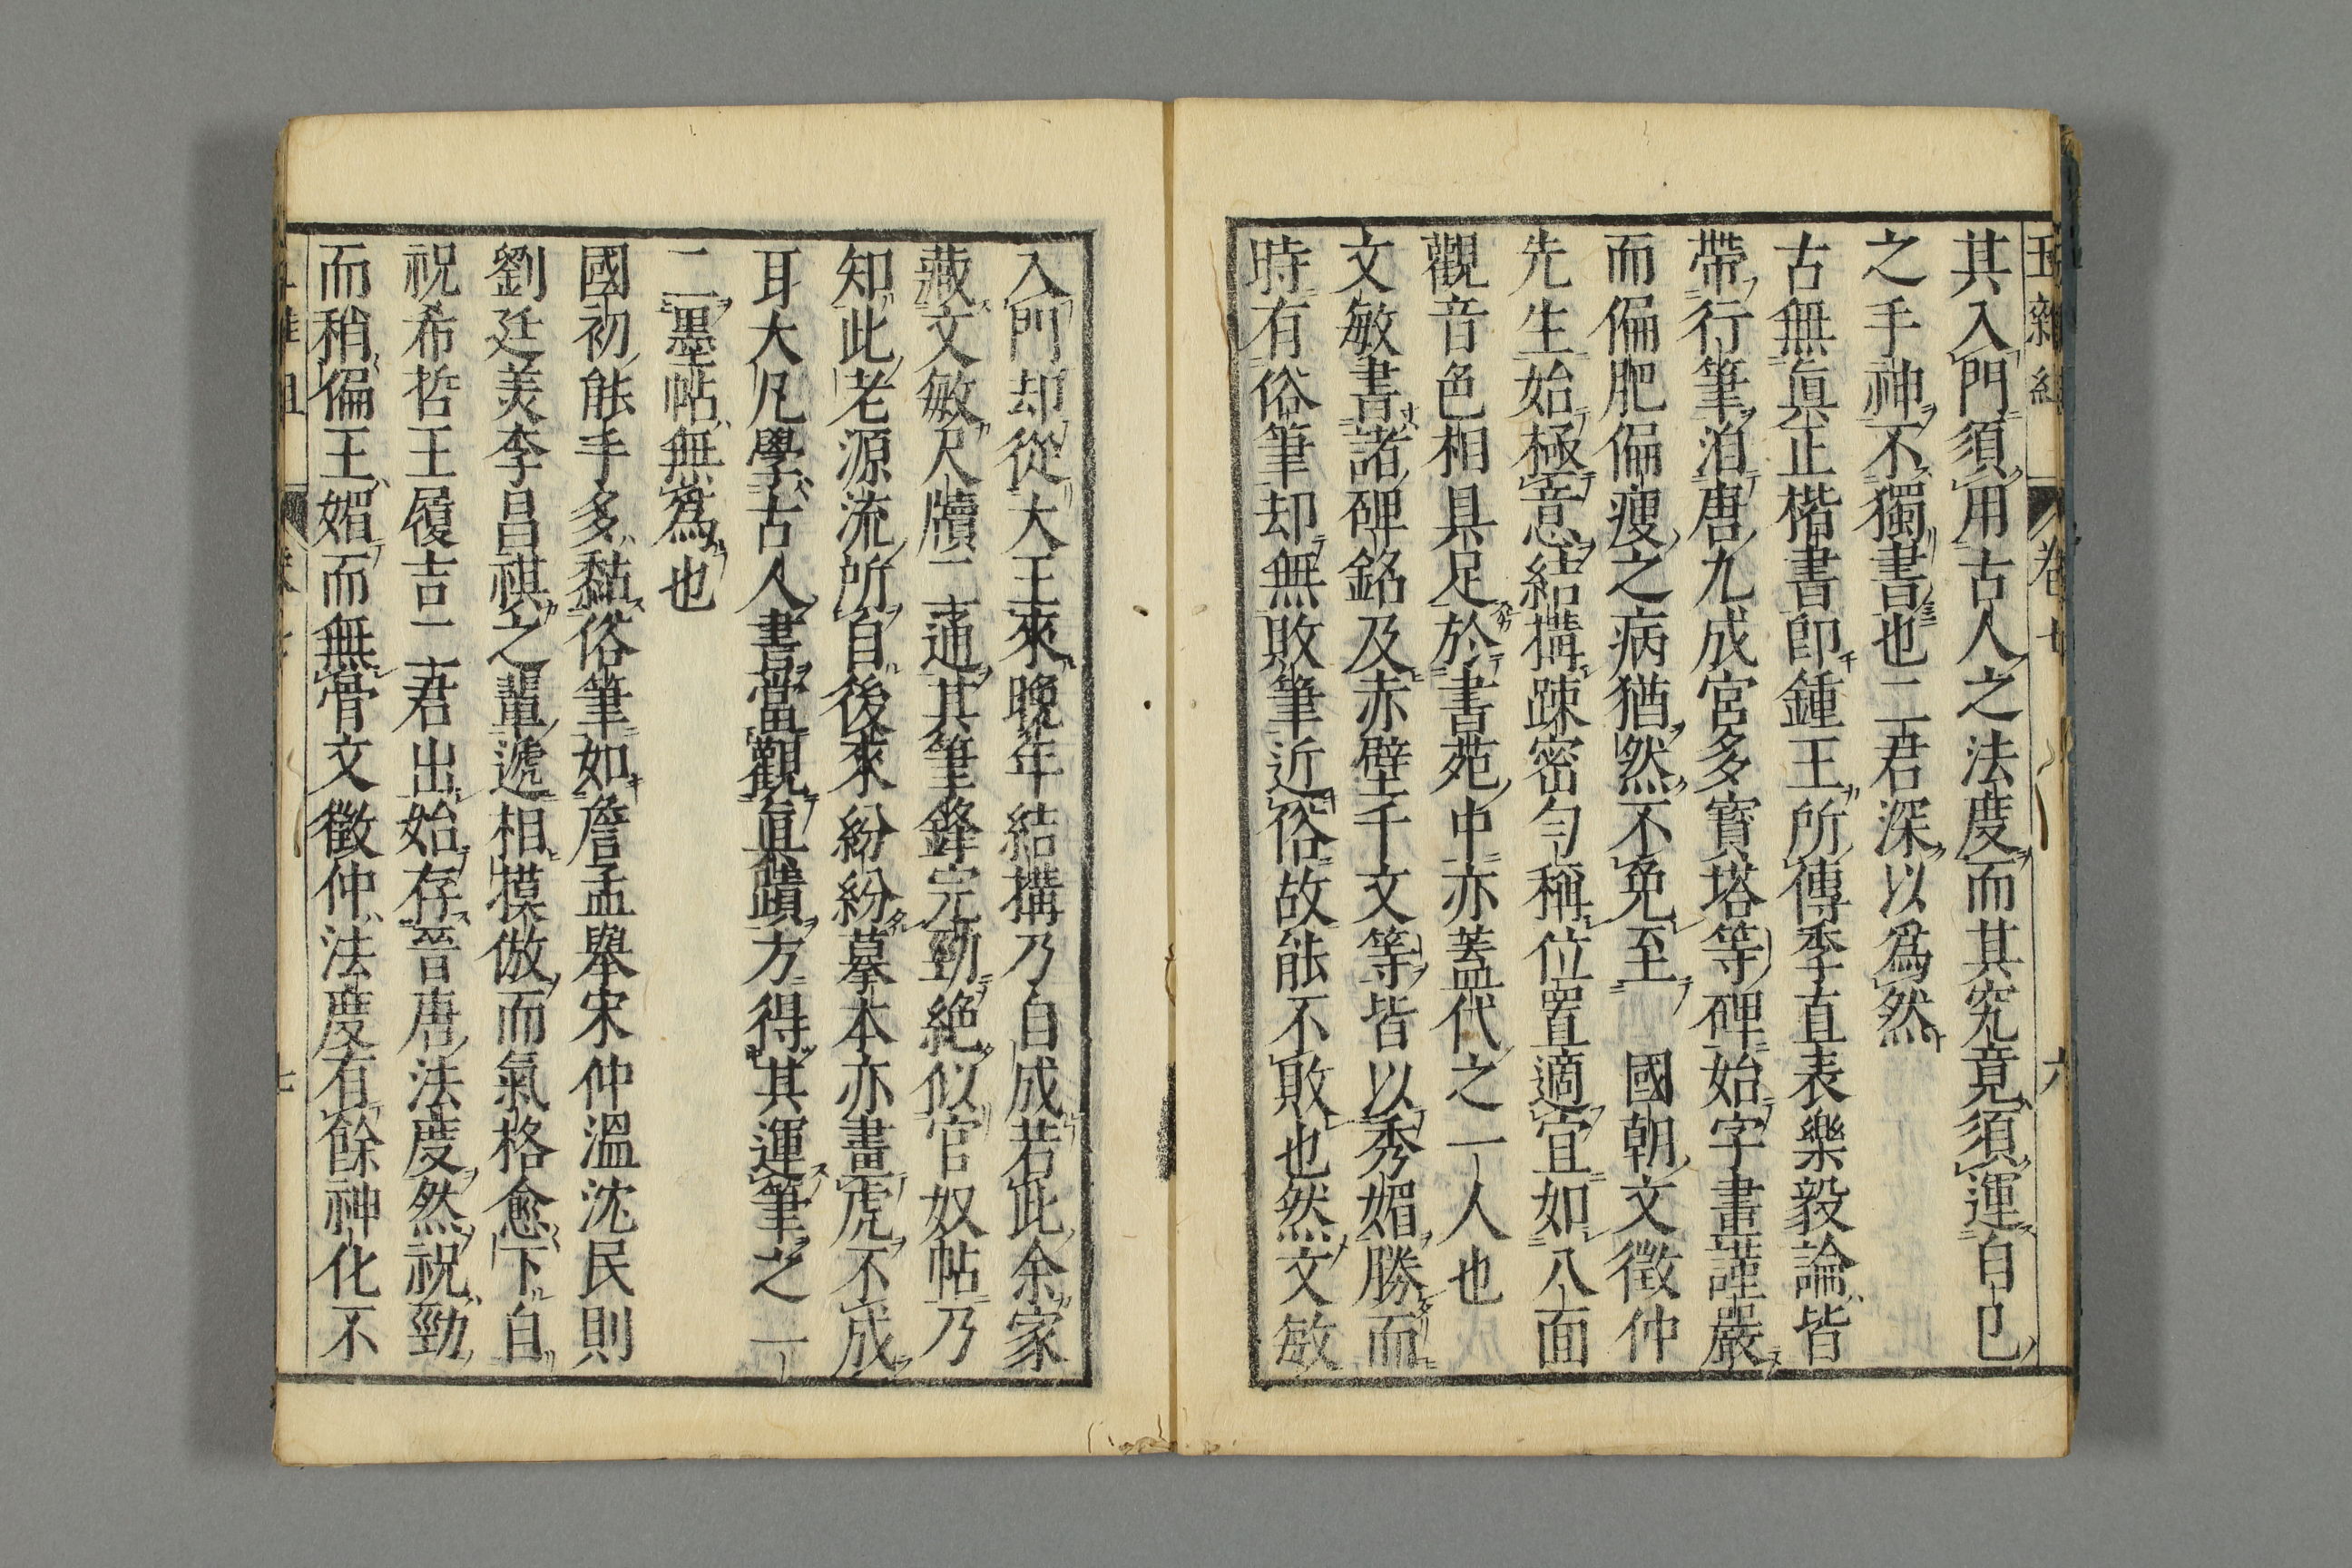 五雜組 卷七 六
其入門須用古人之法度而其究竟須運自已
之手神不獨書也二君深以爲然
古無眞正楷書卽鍾王所傳季直表樂毅論皆
帶行筆洎唐九成宮多寶塔等碑始字畫謹嚴
而偏肥偏瘦之病猶然不免至 國朝文徵仲
先生始極意結搆疎密勻稱位置適宜如八面
觀音色相具足於書苑中亦蓋代之一人也
文敏書諸碑銘及赤壁千文等皆以秀媚勝而
時有俗筆却無敗筆近俗故能不敗也然文敏
入門却從大王來晚年結搆乃自成若此余家
藏文敏尺牘二通其筆鋒完勁絶似官奴帖乃
知此老源流所自後來紛紛摹本亦畫虎不成
耳大凡學古人書當觀眞蹟方得其運筆之一
二墨帖無爲也
國初能手多黏俗筆如詹孟舉宋仲溫沈民則
劉廷美李昌祺之輩遞相摸倣而氣格愈下自
祝希哲王履吉二君出始存晉唐法度然祝勁
而稍偏王媚而無骨文徵仲法度有餘神化不